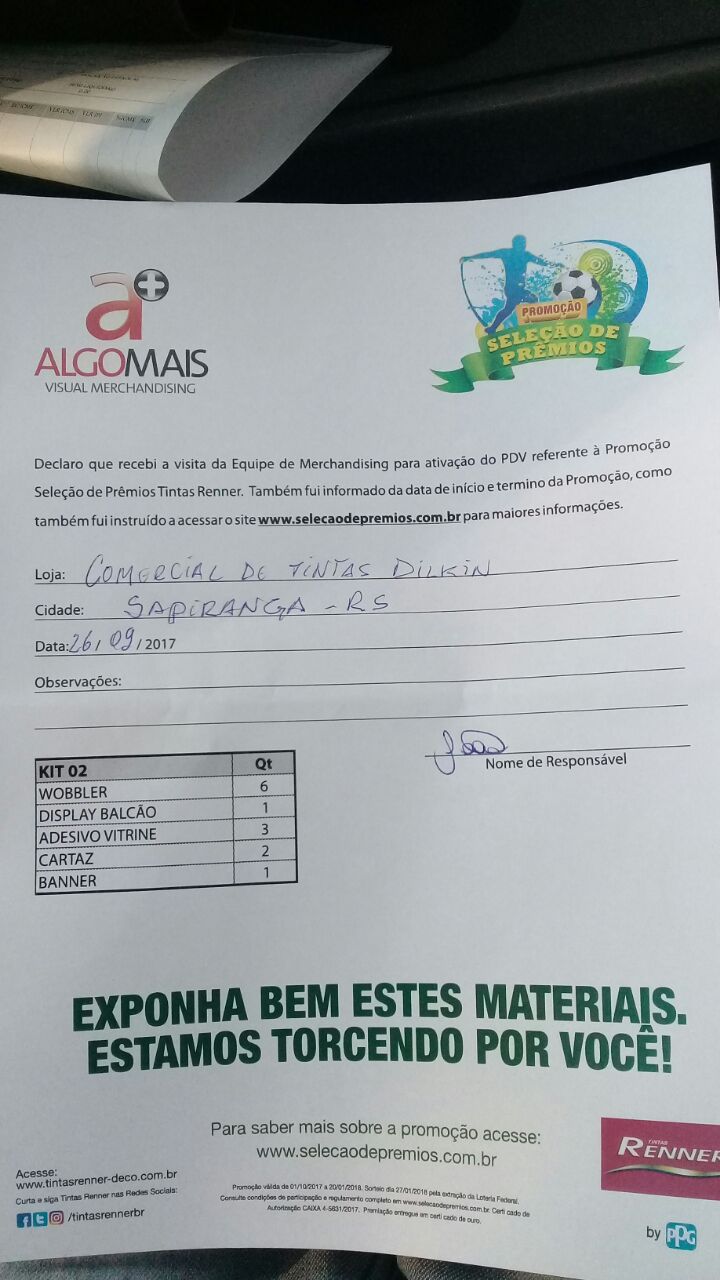 VLR ICMS VLR IPI
a+
ALGOMAIS
VISUAL MERCHANDISING
PROMOÇÃO
SELEÇÃO DE
PRÊMIOS
Declaro que recebi a visita da Equipe de Merchandising para ativação do PDV referente à Promoção
Seleção de Prêmios Tintas Renner. Também fui informado da data de início e termino da Promoção, como
também fui instruído a acessar o site www.selecaodepremios.com.br para maiores informações.
Loja: COMERCIAL DE TINTAS DILKIN
Cidade: SAPIRANGA - RS
Data: 26/09/2017
Observações:
João
Nome de Responsável
KIT 02 Qt
WOBBLER 6
DISPLAY BALCÃO 1
ADESIVO VITRINE 3
CARTAZ 2
BANNER 1
EXPONHA BEM ESTES MATERIAIS.
ESTAMOS TORCENDO POR VOCÊ!
Para saber mais sobre a promoção acesse:
www.selecaodepremios.com.br
TINTAS
RENNER
Acesse:
www.tintasrenner-deco.com.br
Curta e siga Tintas Renner nas Redes Sociais:
/tintasrennerbr
Promoção válida de 01/10/2017 a 20/01/2018. Sorteio dia 27/01/2018 pela extração da Loteria Federal.
Consulte condições de participação e regulamento completo em www.selecaodepremios.com.br. Certi cado de
Autorização CAIXA 4-5831/2017. Premiação entregue em certi cado de ouro.
by PPG